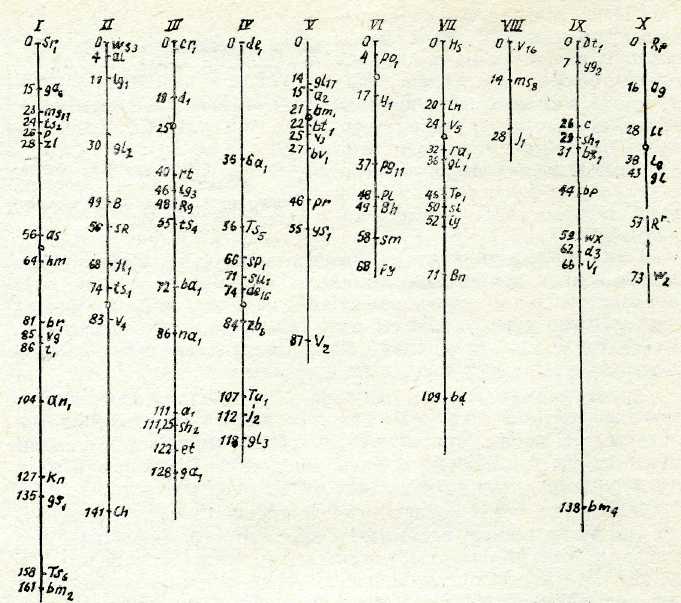 I
0 Sr₁
15 ga₆
23 ms₁₇
24 ts₂
26 p
28 zl
56 as
64 hm
81 br₁
85 vg
86 z₁
104 an₁
127 Kn
135 gs₁
158 Ts₆
161 bm₂
II
0 ws₃
4 al
17 lg₁
30 gl₂
49 B
56 sR
68 yl₁
74 ts₁
83 V₄
141 Ch
III
0 cr₁
19 d₁
25
40 rt
46 lg₃
48 Rg
55 ts₄
72 ba₁
86 na₁
111 a₁
111,25 sh₂
122 et
128 ga₁
IV
0 de₁
35 ba₁
56 Ts₅
66 sp₁
71 su₁
74 de₁₆
84 zb₆
107 Tu₁
112 j₂
118 gl₃
V
0
14 gl₁₇
15 a₂
21 bm₁
22 bt₁
25 v₃
27 bv₁
46 pr
55 ys₁
87 V₂
VI
0
4 po₁
17 y₁
37 pg₁₁
48 PL
49 Bh
58 sm
68 Py
VII
0 Hs
20 Ln
24 V₅
32 ra₁
36 gl₁
46 Tp₁
50 sl
52 iy
71 Bn
109 bd
VIII
0 V₁₆
14 ms₈
28 j₁
IX
0 Dt₁
7 yg₂
26 c
29 sh₁
31 bk₁
44 bp
59 wx
62 d₃
66 v₁
138 bm₄
X
0 Rp
16 og
28 li
38 lg
43 gL
57 Rʳ
73 w₂